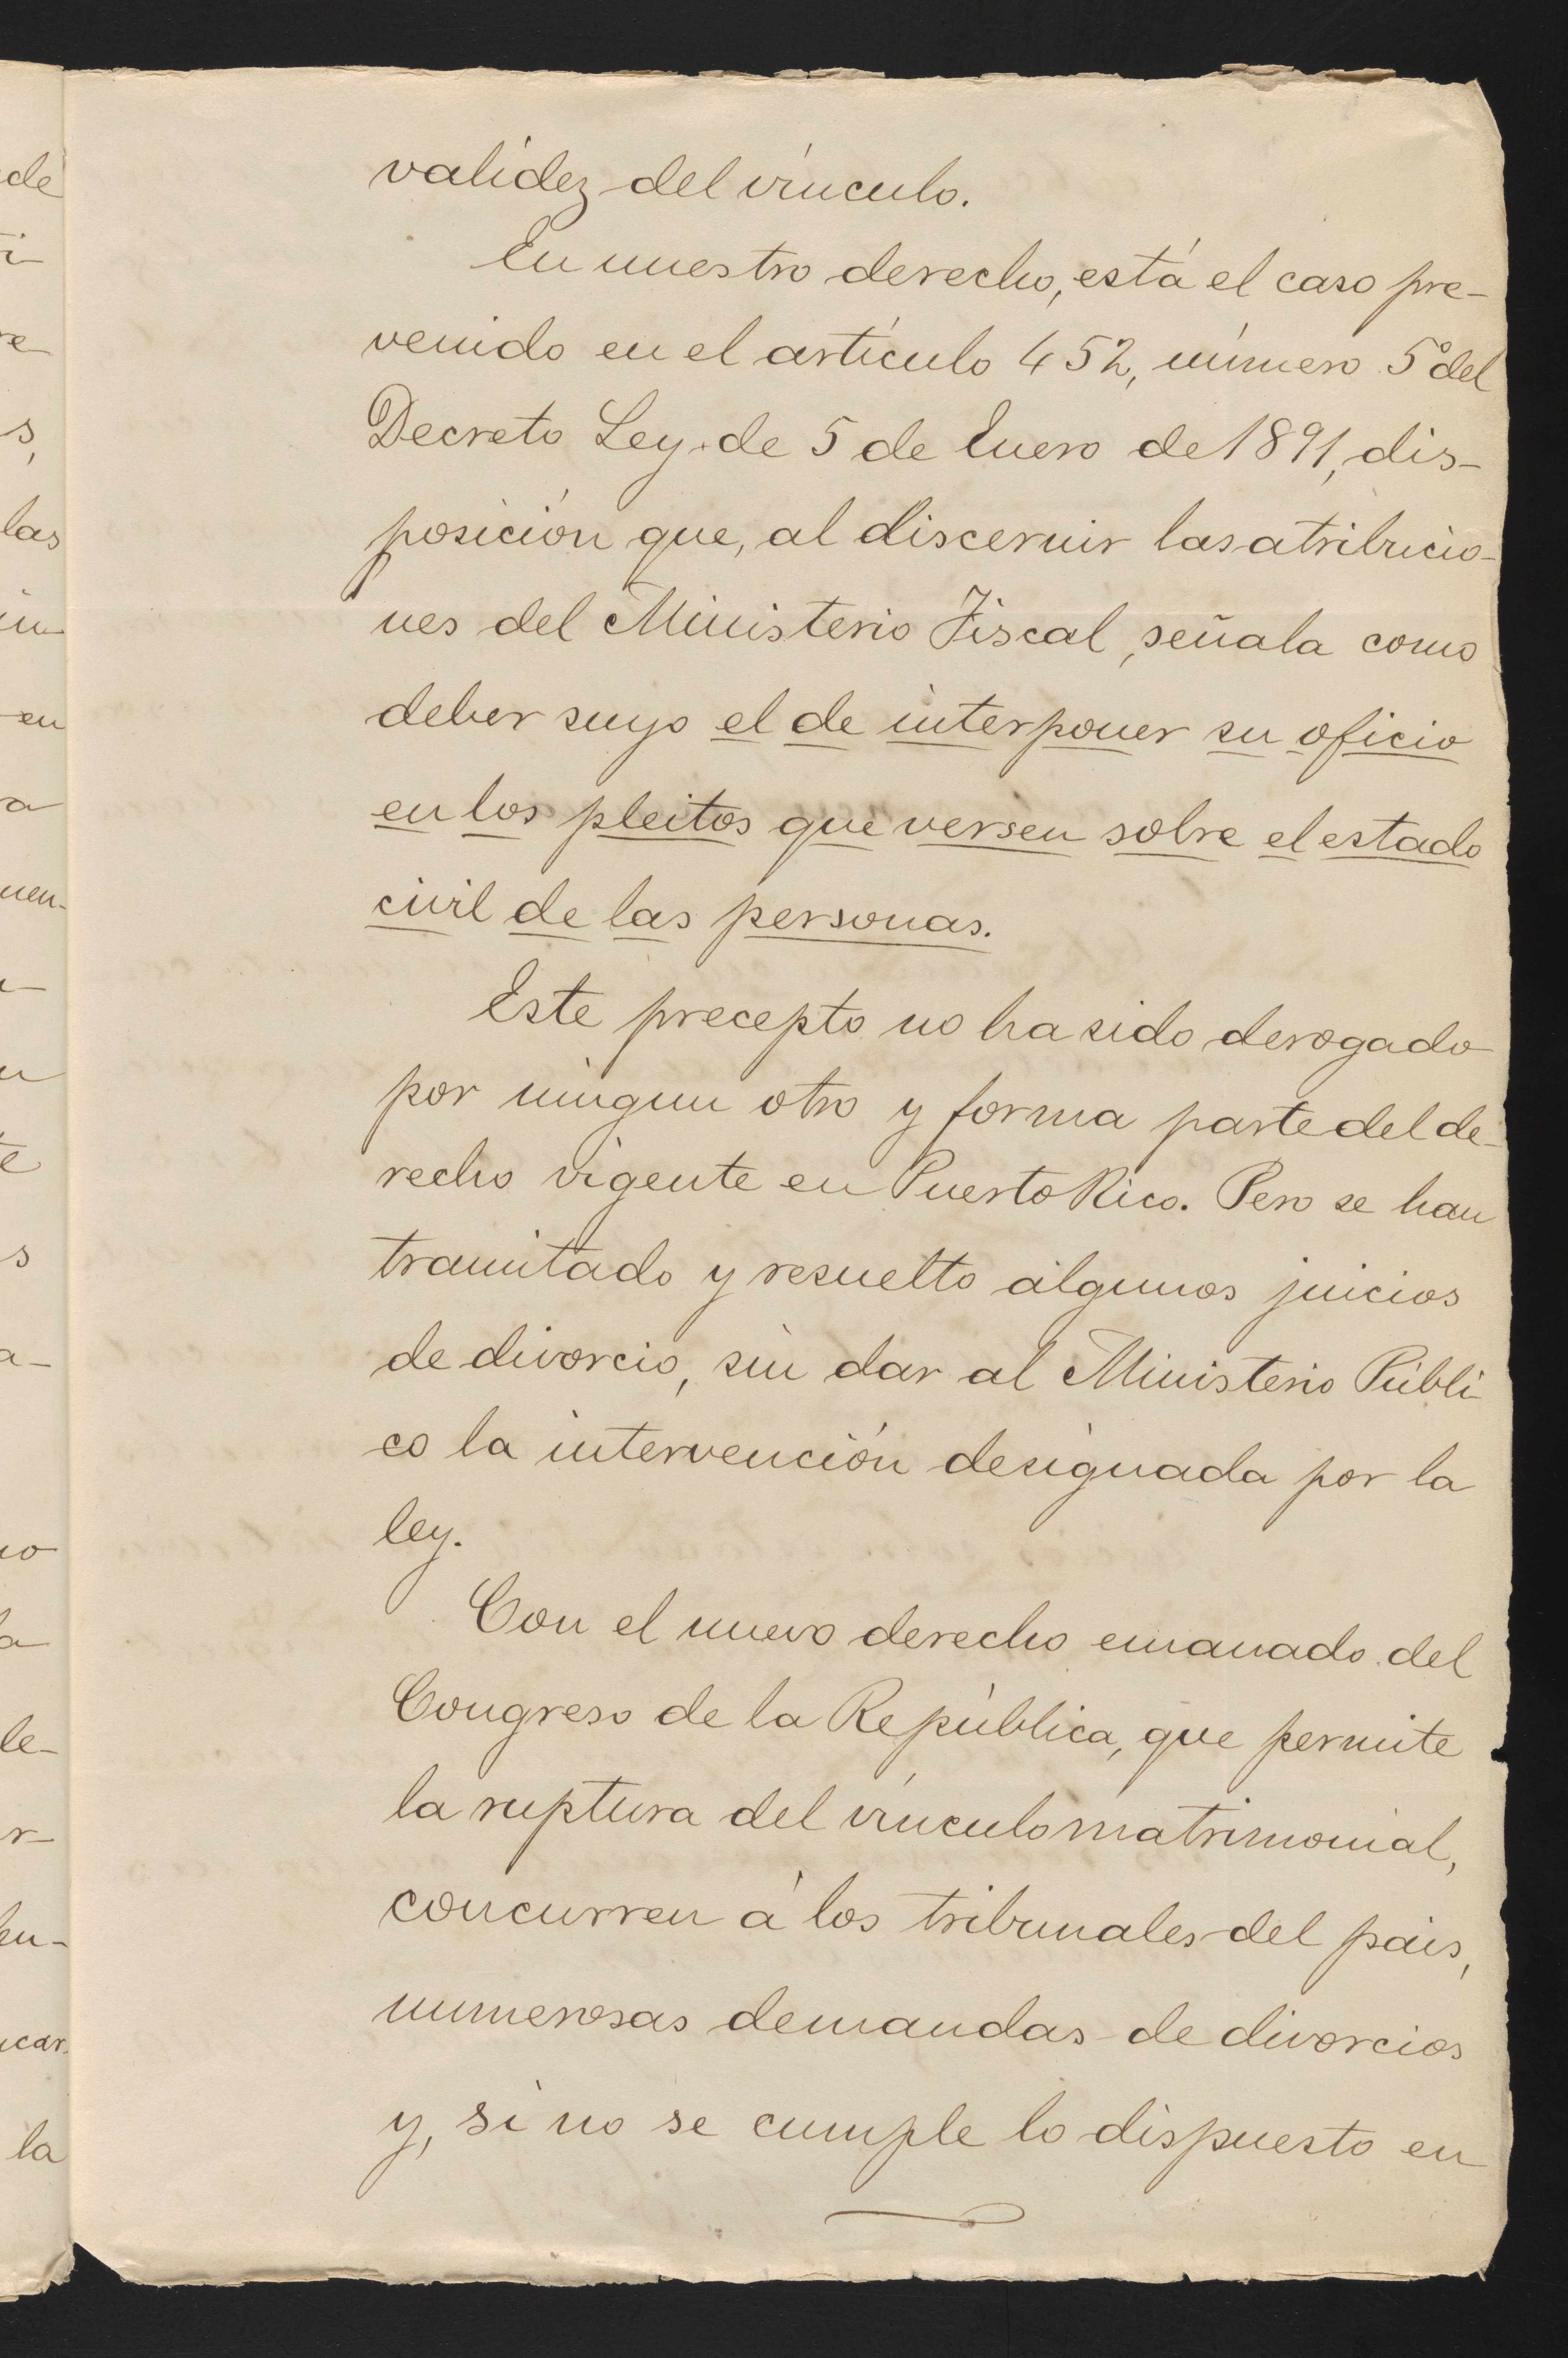 validez del vínculo.
En nuestro derecho, está el caso pre-
venido en el artículo 452, número 5º del
Decreto Ley de 5 de Enero de 1891, dis-
posición que, al discernir las atribucio-
nes del Ministerio Fiscal, señala como
deber suyo el de interponer su oficio
en los pleitos que versen sobre el estado
civil de las personas.
Este precepto no ha sido derogado
por ningun otro y forma parte del de-
recho vigente en Puerto Rico. Pero se han
tramitado y resuelto algunos juicios
de divorcio, sin dar al Ministerio Públi
co la intervención designada por la
ley.
Con el nuevo derecho emanado del
Congreso de la República, que permite
la ruptura del vínculo matrimonial,
concurren á los tribunales del pais,
numerosas demandas de divorcios
y, si no se cumple lo dispuesto en